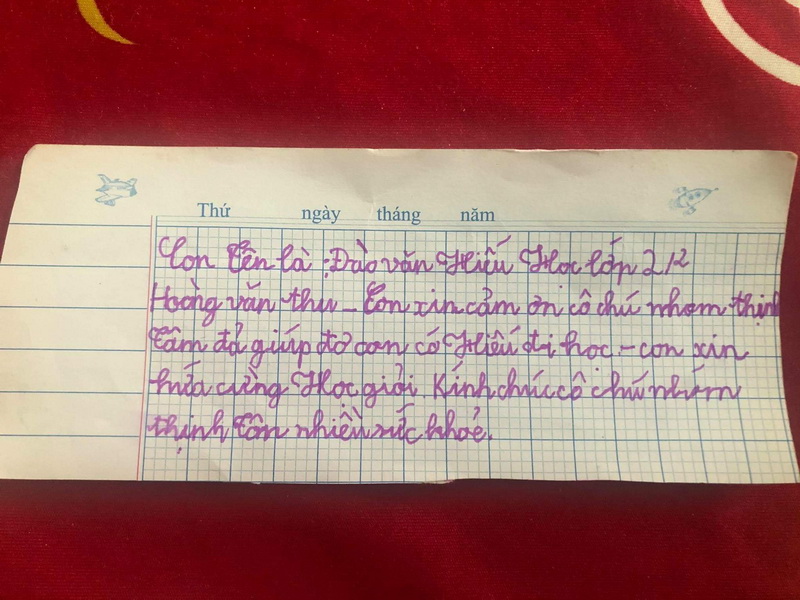 Thứ ngày tháng năm
Con tên là: Đào văn Hiếu Học lớp 2/2
Hoàng văn thu - Con xin cảm ơn cô chú nhom thịnh
tâm đả giúp đở con có Hiếu đi học - con xin
hứa cường Học giỏi. Kính chúc cô chú nhóm
thịnh tâm nhiều sức khoẻ.